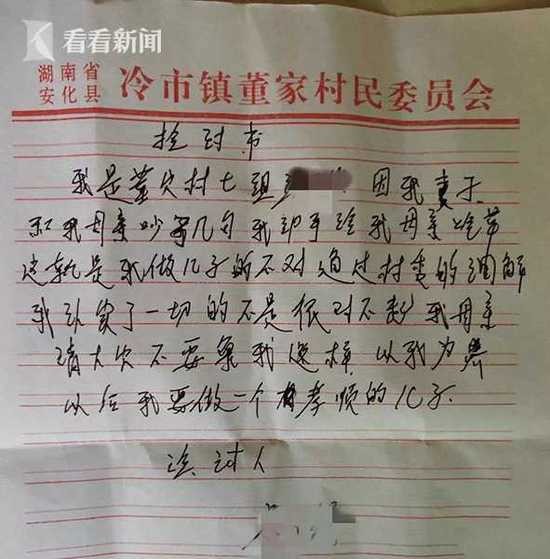 看看新闻
湖南省
安化县 冷市镇董家村民委员会
检讨书
我是董家村七组 因我妻子
和我母亲吵了几句我动手给我母亲
这就是我做儿子的不对通过村委的调解
我认识了一切的不是很对不起我母亲
请大家不要象我这样 以我为界
以后我要做一个有孝顺的儿子.
检讨人